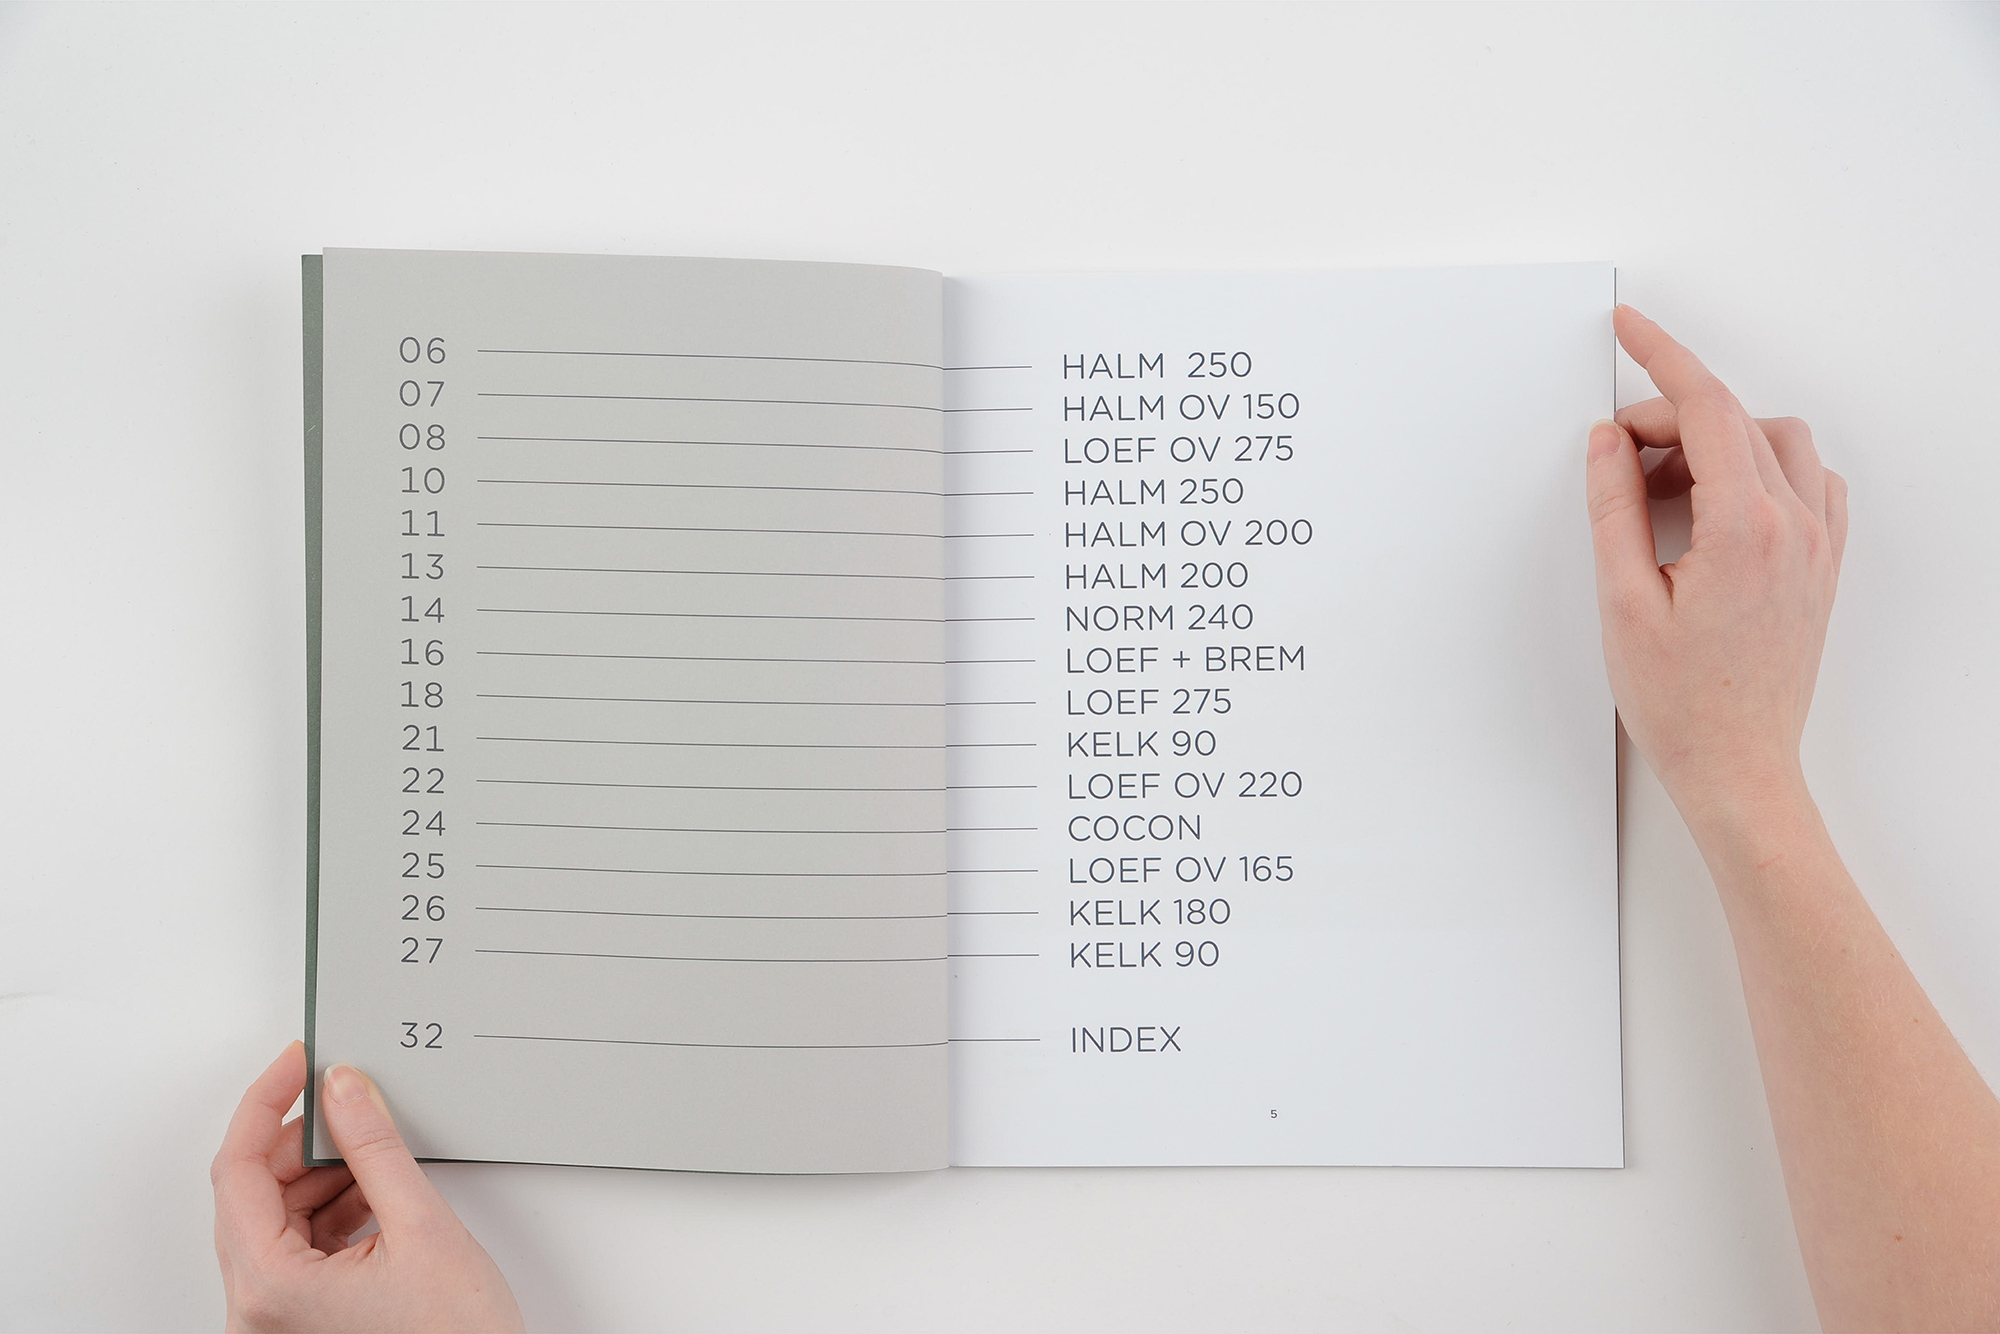 06 HALM 250
07 HALM OV 150
08 LOEF OV 275
10 HALM 250
11 HALM OV 200
13 HALM 200
14 NORM 240
16 LOEF + BREM
18 LOEF 275
21 KELK 90
22 LOEF OV 220
24 COCON
25 LOEF OV 165
26 KELK 180
27 KELK 90
32 INDEX
5